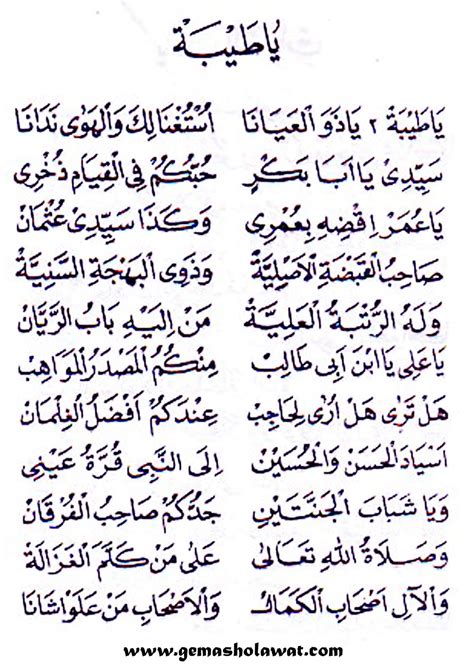 يَاطَيْبَةْ
يَاطَيْبَةْ ٢ يَاذَوَ الْعَيَانَا اُشْتُغْنَالِكَ وَالْهَوٰى نَدَانَا
سَيِّدِىْ يَا اَبَا بَكْرٍ حُبُّكُمْ فِى الْقِيَامِ ذُخْرِى
يَاعُمَرْ اِقْضِهِ بِعُمْرِى وَكَذَا سَيِّدِىْ عُثْمَانْ
صَاحِبُ الْقَبْضَةِ الْاَصْلِيَّةْ وَذَوِى الْبَهْجَةِ السَّنِيَّةْ
وَلَهُ الرُّتْبَةُ الْعَلِيَّةْ مَنْ اِلَيْهِ بَابُ الرَّيَّانْ
يَاعَلِى يَا ابْنَ اَبِى طَالِبْ مِنْكُمُ الْمَصْدَرُ الْمَوَاهِبْ
هَلْ تَرٰى هَلْ اُرٰى لِحَاجِبْ عِنْدَكُمْ اَفْضَلُ الْغِلْمَانْ
اَسْيَادَ الْحَسَنْ وَالْحُسَيْنْ اِلَى النَّبِى قُرَّةُ عَيْنِى
وَيَا شَبَابَ الْجَنَّتَيْنِ جَدُّكُمْ صَاحِبُ الْفُرْقَانْ
وَصَلَاةُ اللهِ تَعَالٰى عَلٰى مَنْ كَلَّمَ الْغَزَالَةْ
وَالْاٰلِ اَصْحَابِ الْكَمَالْ وَالْاَصْحَابِ مَنْ عَلَوْاشَانَا
www.gemasholawat.com